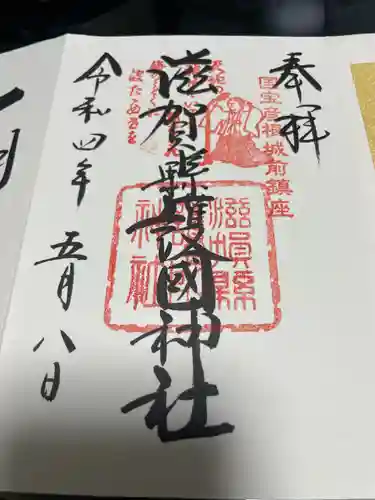 奉拝
国宝彦根城前鎮座
滋賀縣護國神社
滋賀縣護國神社
令和四年
五月八日